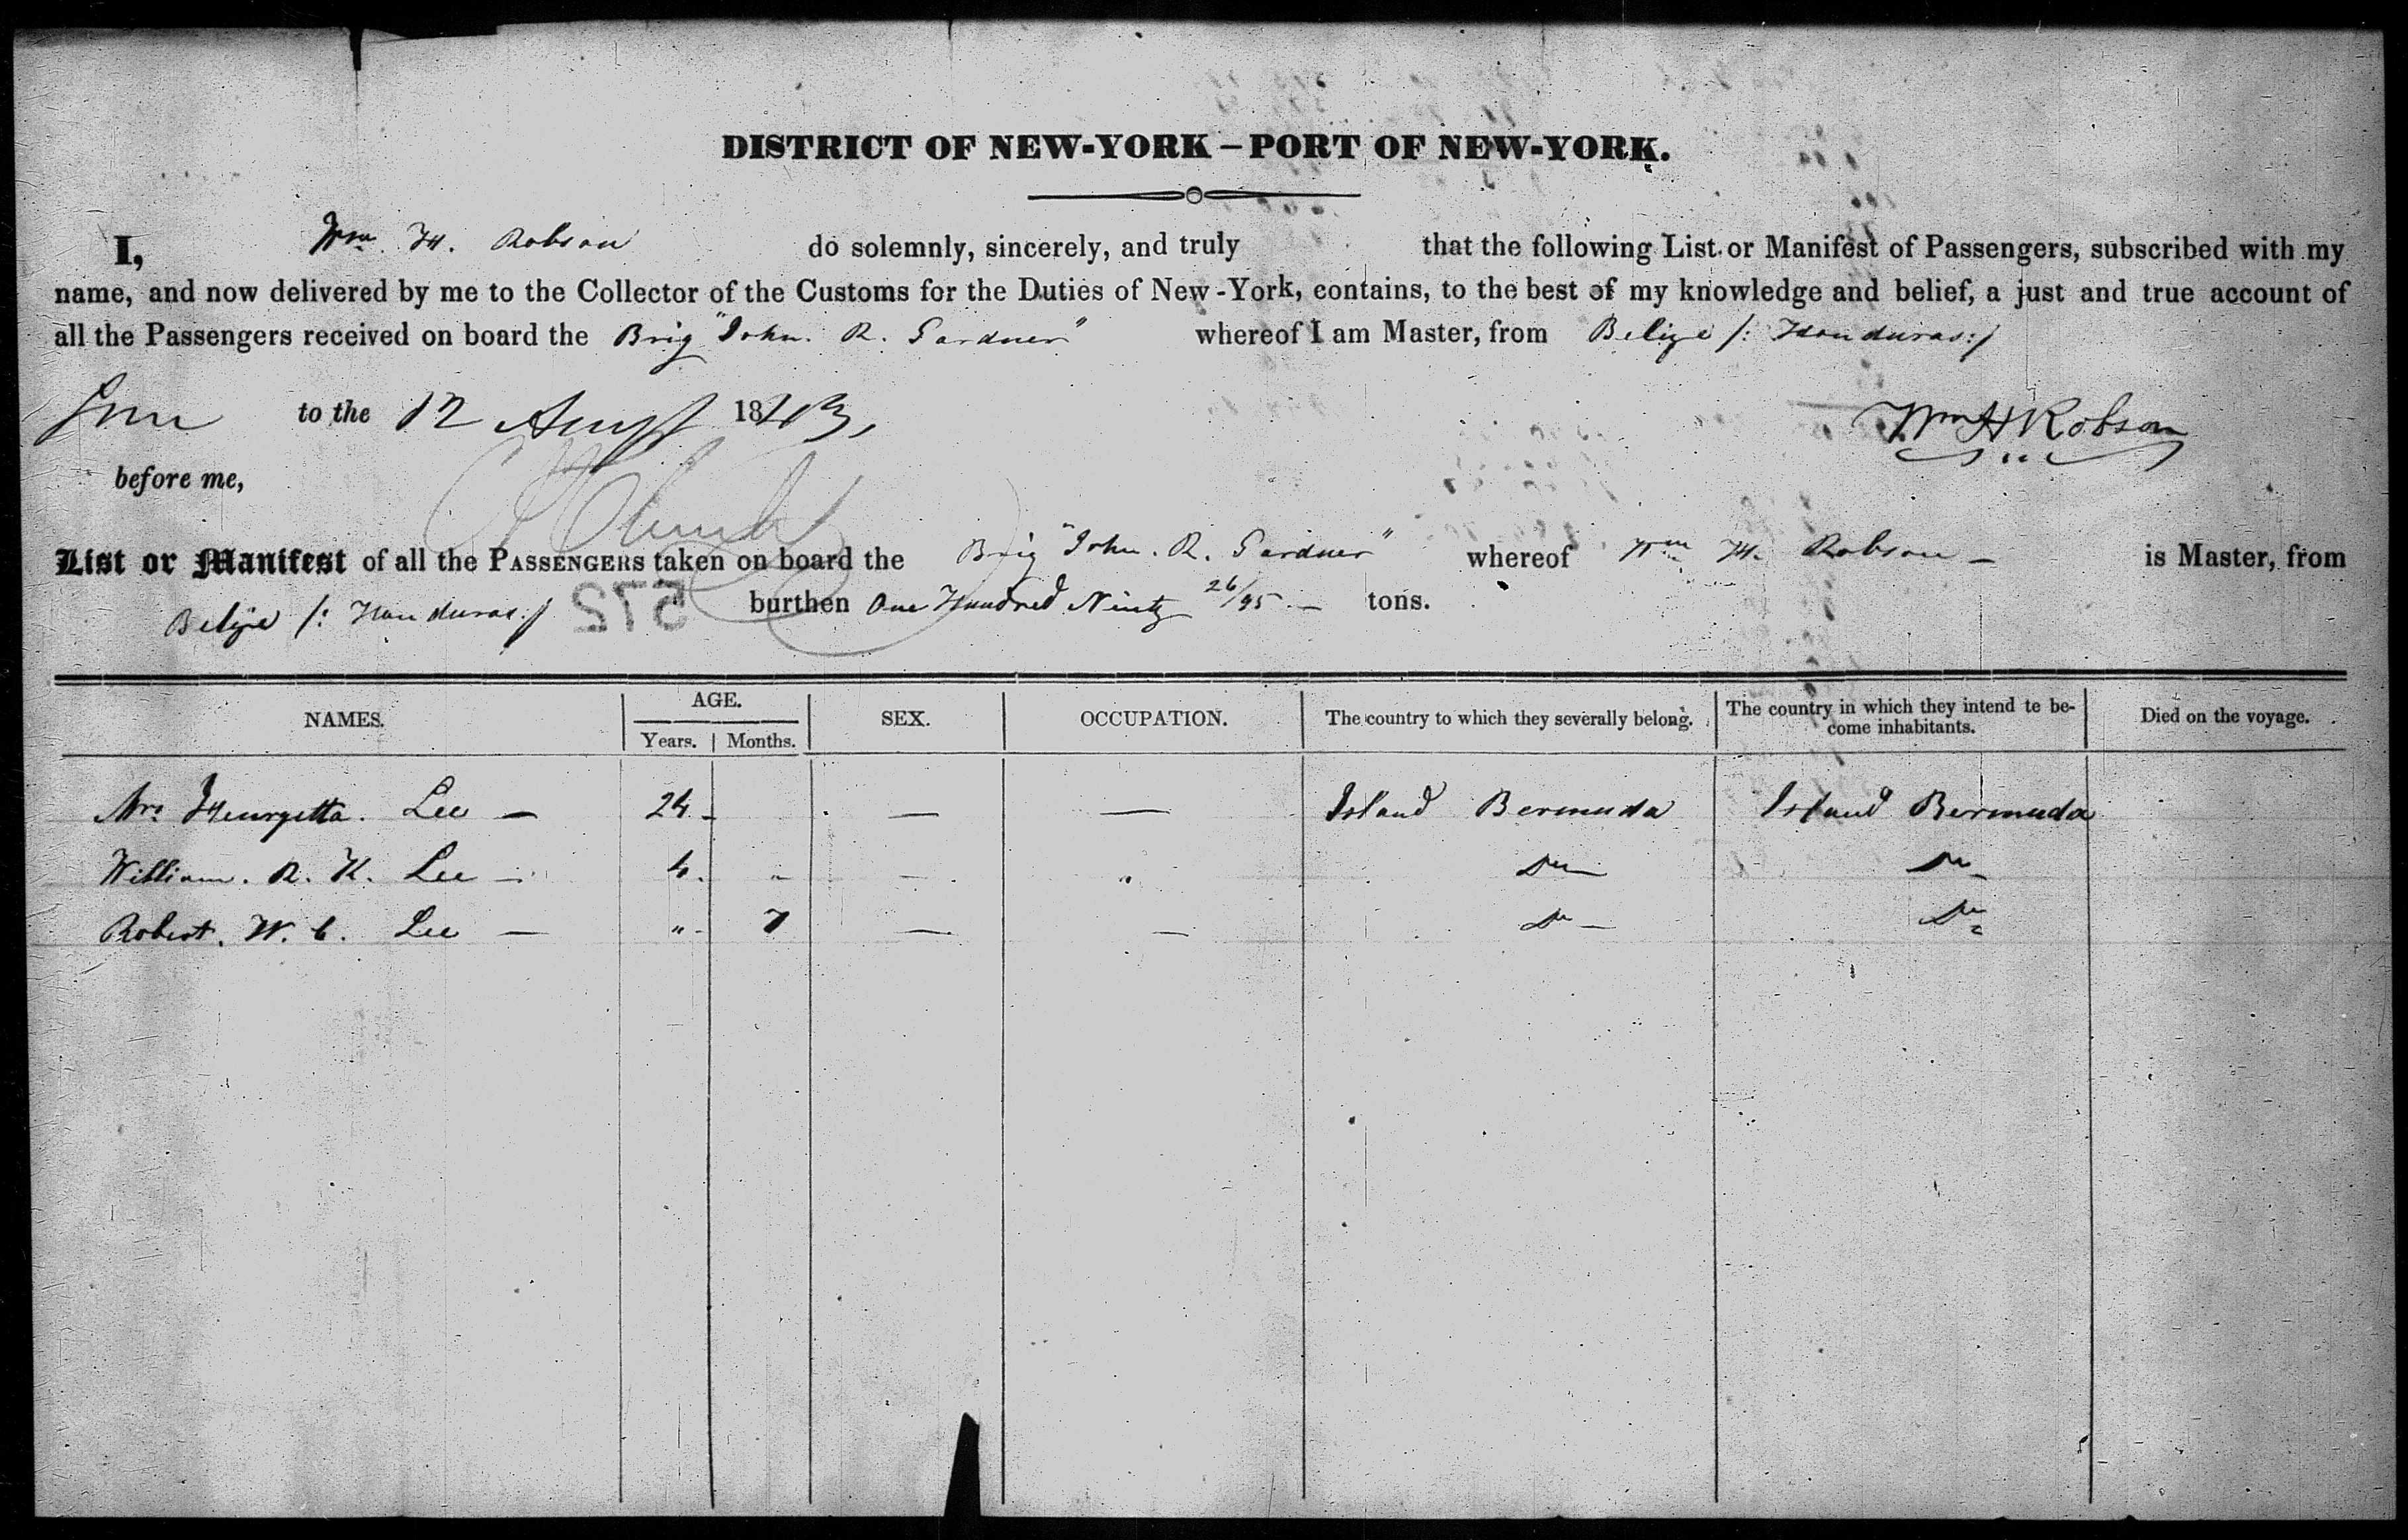 DISTRICT OF NEW-YORK – PORT OF NEW-YORK.
I, Wm H. Robson do solemnly, sincerely, and truly that the following List or Manifest of Passengers, subscribed with my
name, and now delivered by me to the Collector of the Customs for the Duties of New-York, contains, to the best of my knowledge and belief, a just and true account of
all the Passengers received on board the Brig "John. R. Gardner" whereof I am Master, from Belize /: Honduras :/
to the 12 Augst 1843, Wm H Robson
before me,
List or Manifest of all the PASSENGERS taken on board the Brig "John. R. Gardner" whereof Wm H. Robson — is Master, from
Belize /: Honduras :/ 572 burthen One Hundred Ninety 26/95 — tons.
NAMES. AGE. SEX. OCCUPATION. The country to which they severally belong. The country in which they intend te be-
come inhabitants. Died on the voyage.
Years. Months.
Mrs Henryetta. Lee — 24 — — Island Bermuda Island Bermuda
William. R. H. Lee — 4. " — " Do — Do —
Robert. W. C. Lee — " 7 — — Do — Do